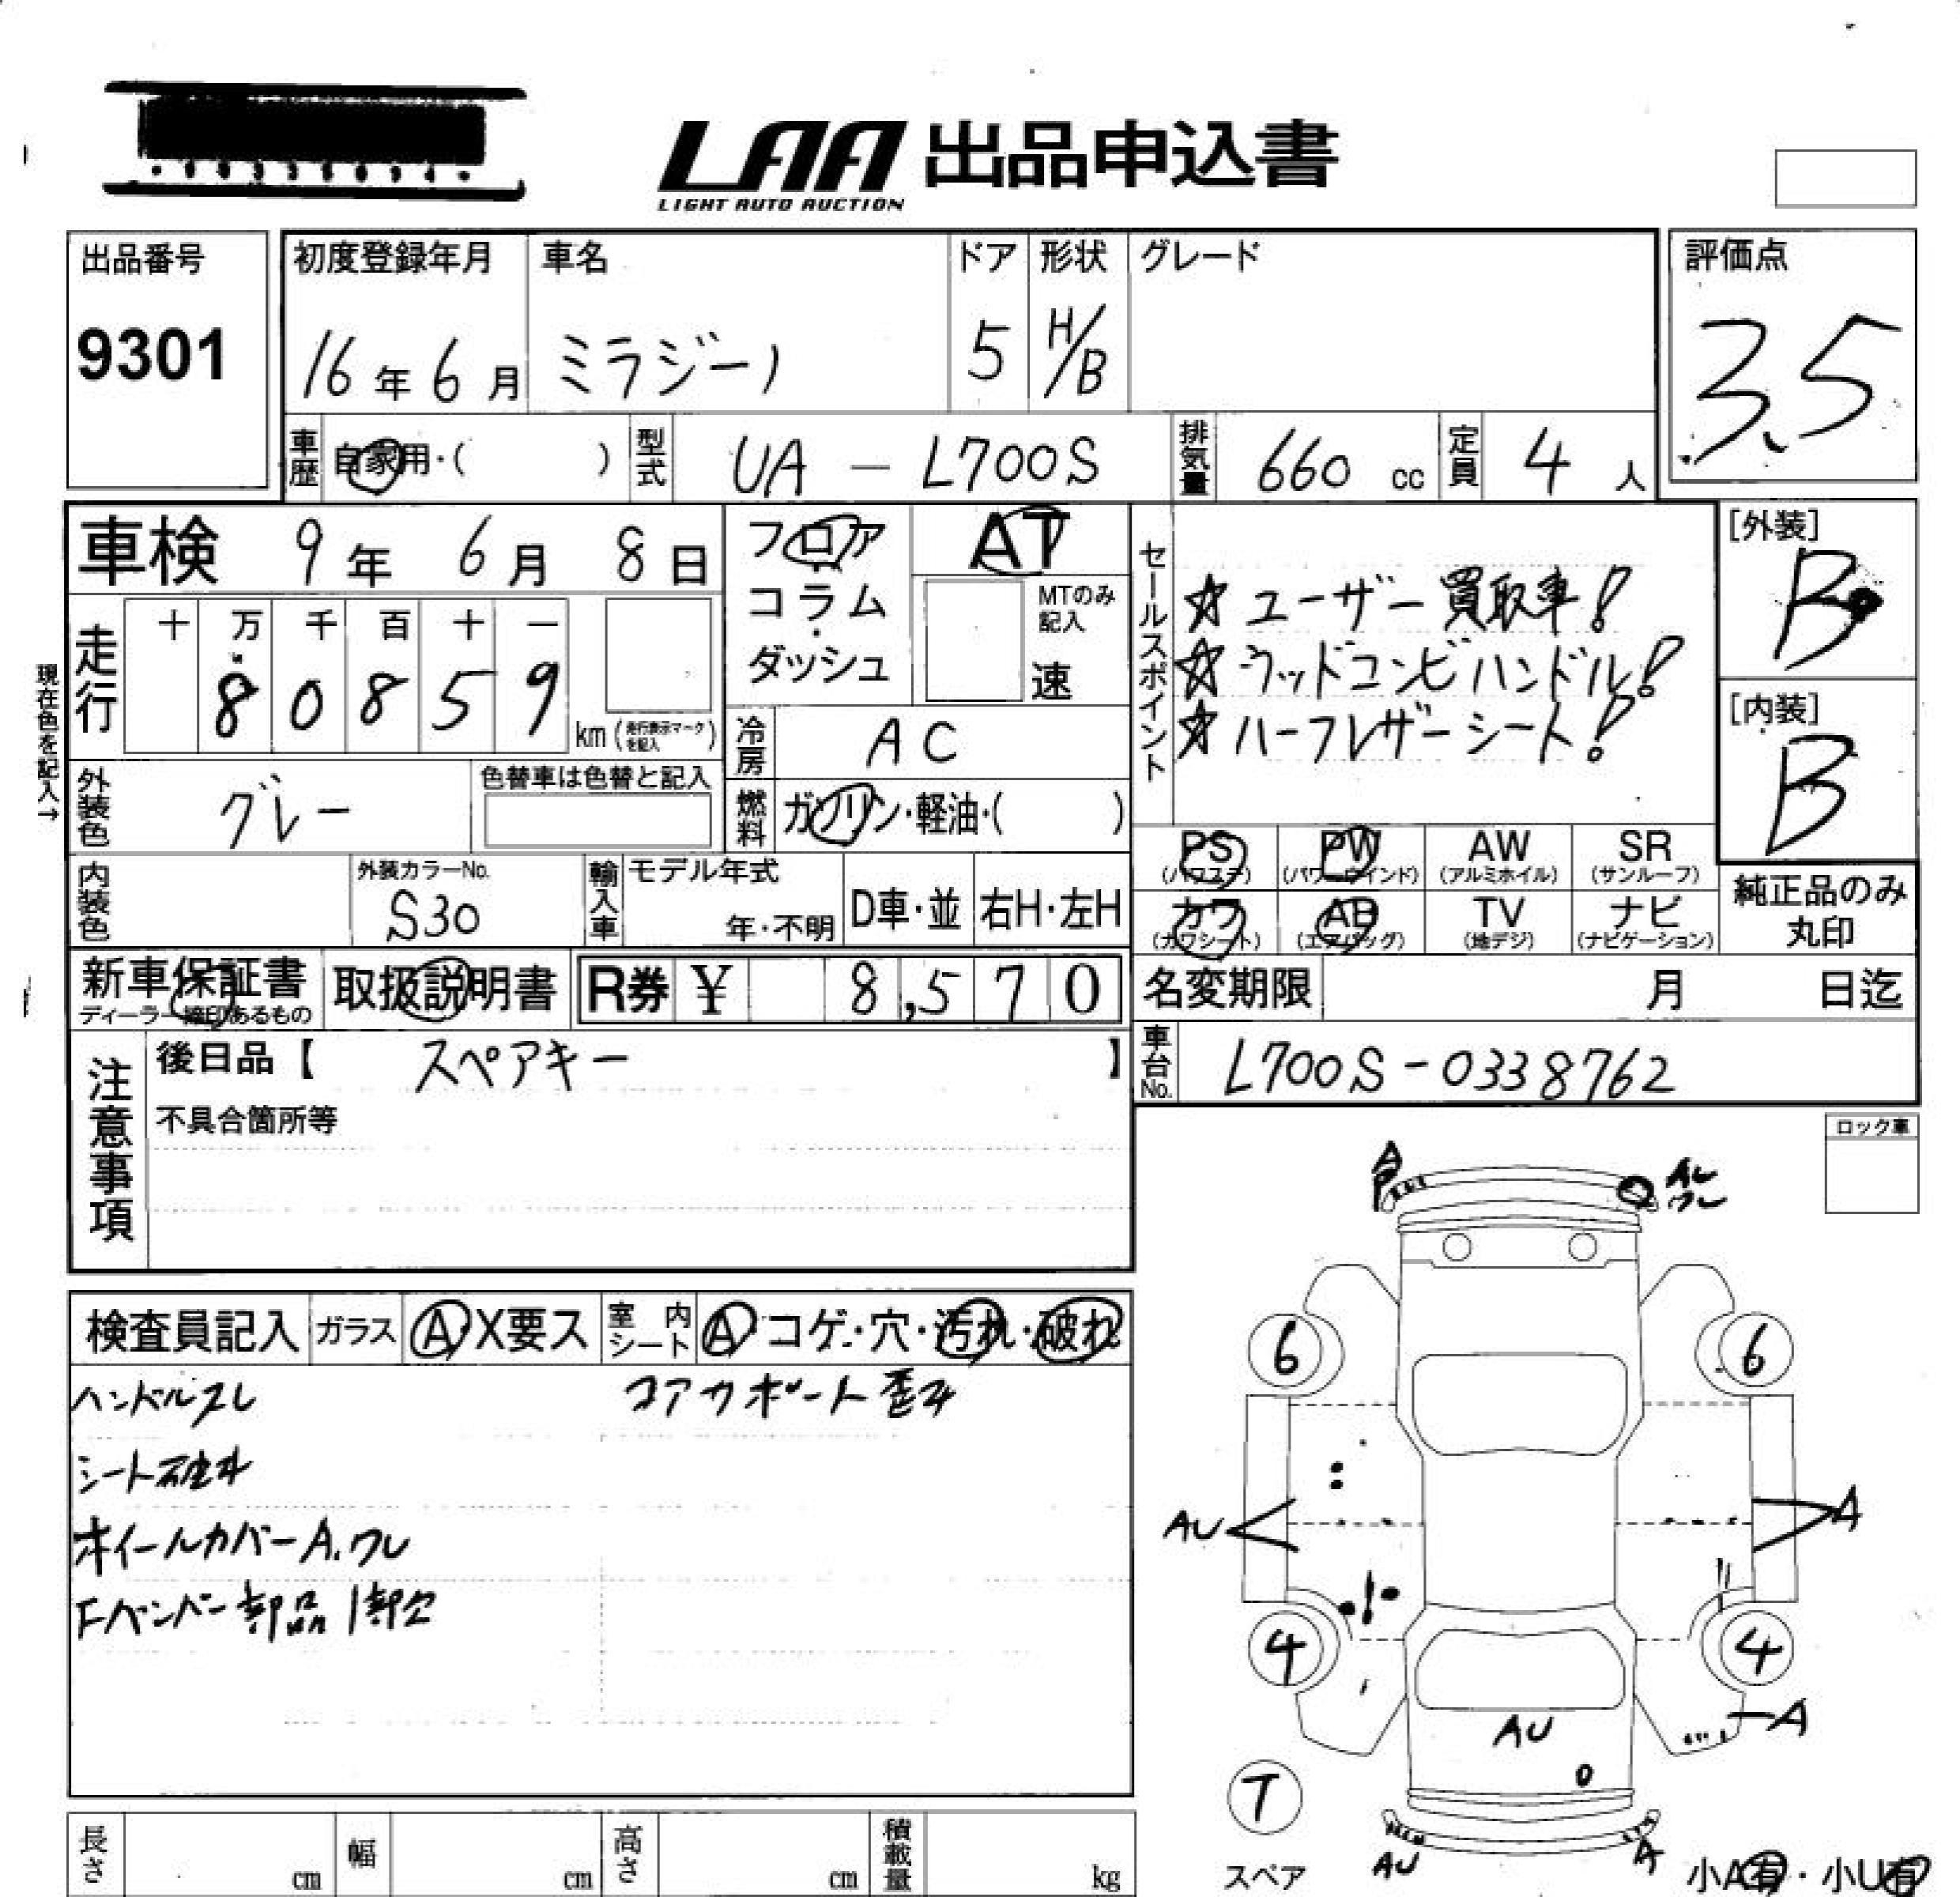 LAA 出品申込書
LIGHT AUTO AUCTION
出品番号
9301
初度登録年月
16年6月
車名
ミラジーノ
ドア
5
形状
H/B
グレード
評価点
3.5
車歴
自家用・( )
型式
UA - L700S
排気量
660 cc
定員
4 人
車検 9年 6月 8日
走行
十 万 千 百 十 一
8 0 8 5 9
km(走行表示マークを記入)
現在色を記入→
外装色
グレー
色替車は色替と記入
内装色
外装カラーNo.
S30
輸入車
モデル年式
年・不明
D車・並
右H・左H
フロア
コラム
・
ダッシュ
AT
MTのみ
記入
速
冷房
AC
燃料
ガソリン・軽油・( )
セールスポイント
☆ユーザー買取車!
☆ウッドコンビハンドル!
☆ハーフレザーシート!
[外装]
B
[内装]
B
PS
(パワステ)
PW
(パワーウインド)
AW
(アルミホイル)
SR
(サンルーフ)
カワ
(カワシート)
AB
(エアバッグ)
TV
(地デジ)
ナビ
(ナビゲーション)
純正品のみ
丸印
新車保証書
ディーラー締印あるもの
取扱説明書
R券 ¥ 8,570
名変期限 月 日迄
車台No.
L700S-0338762
注意事項
後日品【 スペアキー 】
不具合箇所等
ロック車
検査員記入
ガラス
A・X要ス
室内
シート
A・コゲ・穴・汚れ・破れ
ハンドルスレ
コアサポート歪み
シート破れ
ホイールカバーA.ワレ
Fバンパー部品1部欠
A
ワレ
6
6
AU
A
4
4
A
AU
T
スペア
AU
A
小A有・小U有
長さ
cm
幅
cm
高さ
cm
積載量
kg